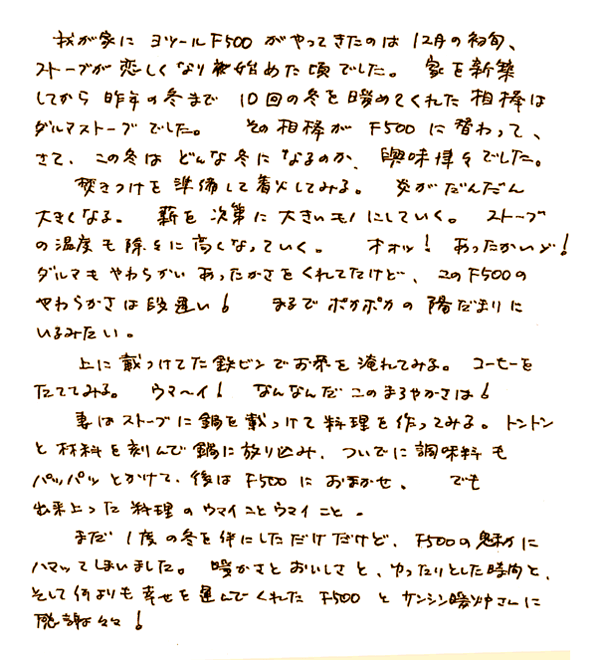 我が家に ヨツールF500 がやってきたのは 12月の初旬、
ストーブが恋しくなり始めた頃でした。 家を新築
してから 昨年の冬まで 10回の冬を暖めてくれた相棒は
ダルマストーブでした。 その相棒が F500 に替わって、
さて、この冬は どんな冬になるのか、興味津々でした。
焚きつけを準備して着火してみる。 炎がだんだん
大きくなる。 薪を次第に大きいモノにしていく。 ストーブ
の温度も除々に高くなっていく。 オオッ! あったかいど!
ダルマもやわらかいあったかさをくれてたけど、このF500の
やわらかさは段違い! まるでポカポカの陽だまりに
いるみたい。
上に載っけてた鉄ビンでお茶を淹れてみる。 コーヒーを
たててみる。 ウマ〜イ! なんなんだこのまろやかさは!
妻はストーブに鍋を載っけて料理を作ってみる。トントン
と材料を刻んで鍋に放り込み、ついでに調味料も
パッパッとかけて、後はF500におまかせ。 でも
出来上った料理のウマイことウマイこと。
まだ1度の冬を伴にしただけだけど、F500の魅力に
ハマッてしまいました。 暖かさとおいしさと、ゆったりとした時間と、
そして何よりも幸せを運んでくれた F500 とサンシン暖炉さんに
感謝々々!